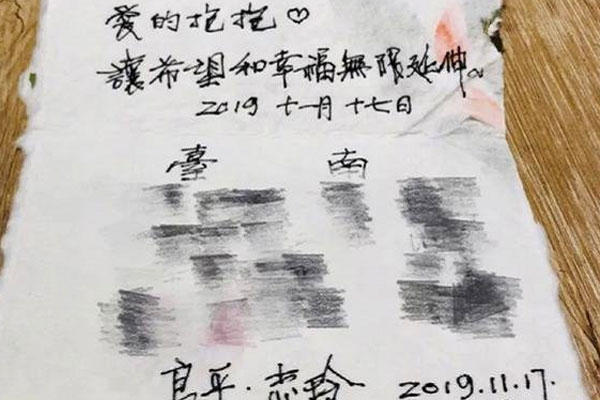 愛的抱抱♡
讓希望和幸福無限延伸。
2019 十一月十七日
臺 南
良平.志玲 2019.11.17.